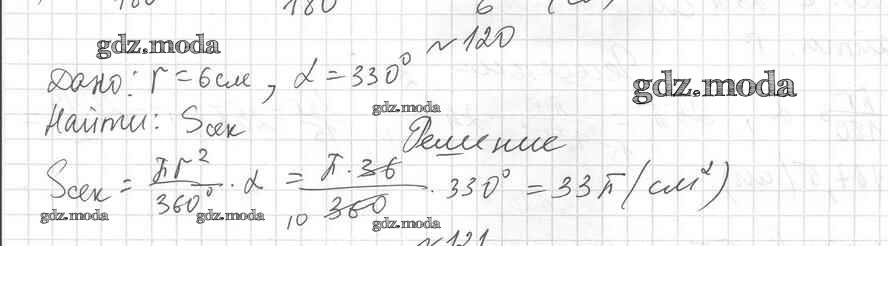 180 180 6
gdz.moda
№120
Дано: r = 6 см, α = 330°
gdz.moda
gdz.moda
Найти: Sсек
Решение
Sсек = πr²/360° · α = π·36/360 · 330° = 33π (см²)
10
gdz.moda gdz.moda gdz.moda
№121